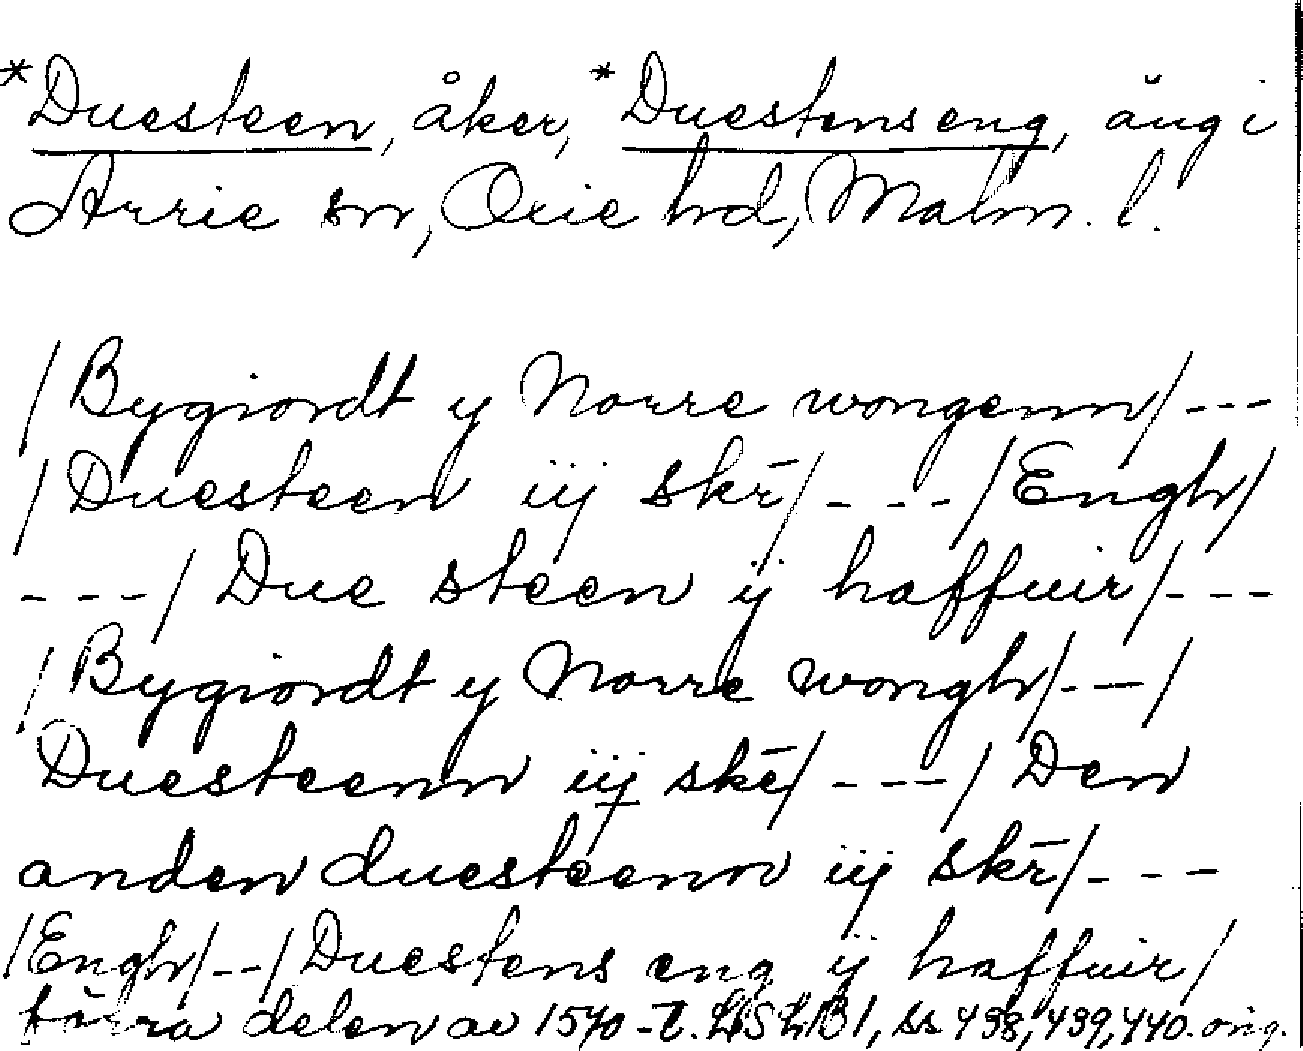 *Duesteen, åker, *Duestens eng, äng i
Arrie sn, Oxie hd, Malm. l.
/Bygiordt y Norre wongenn/---
/Duesteen iij skr̄/---/Engh/
---/Due steen ij haffuir/---
/Bygiordt y Norre wongh/---/
Duesteenn iij skē/---/Den
anden duesteenn iij skr̄/---
/Engh/--/Duestens eng ij haffuir/
förra delen av 1570-t. LHSLB1, ss 438, 439, 440. orig.